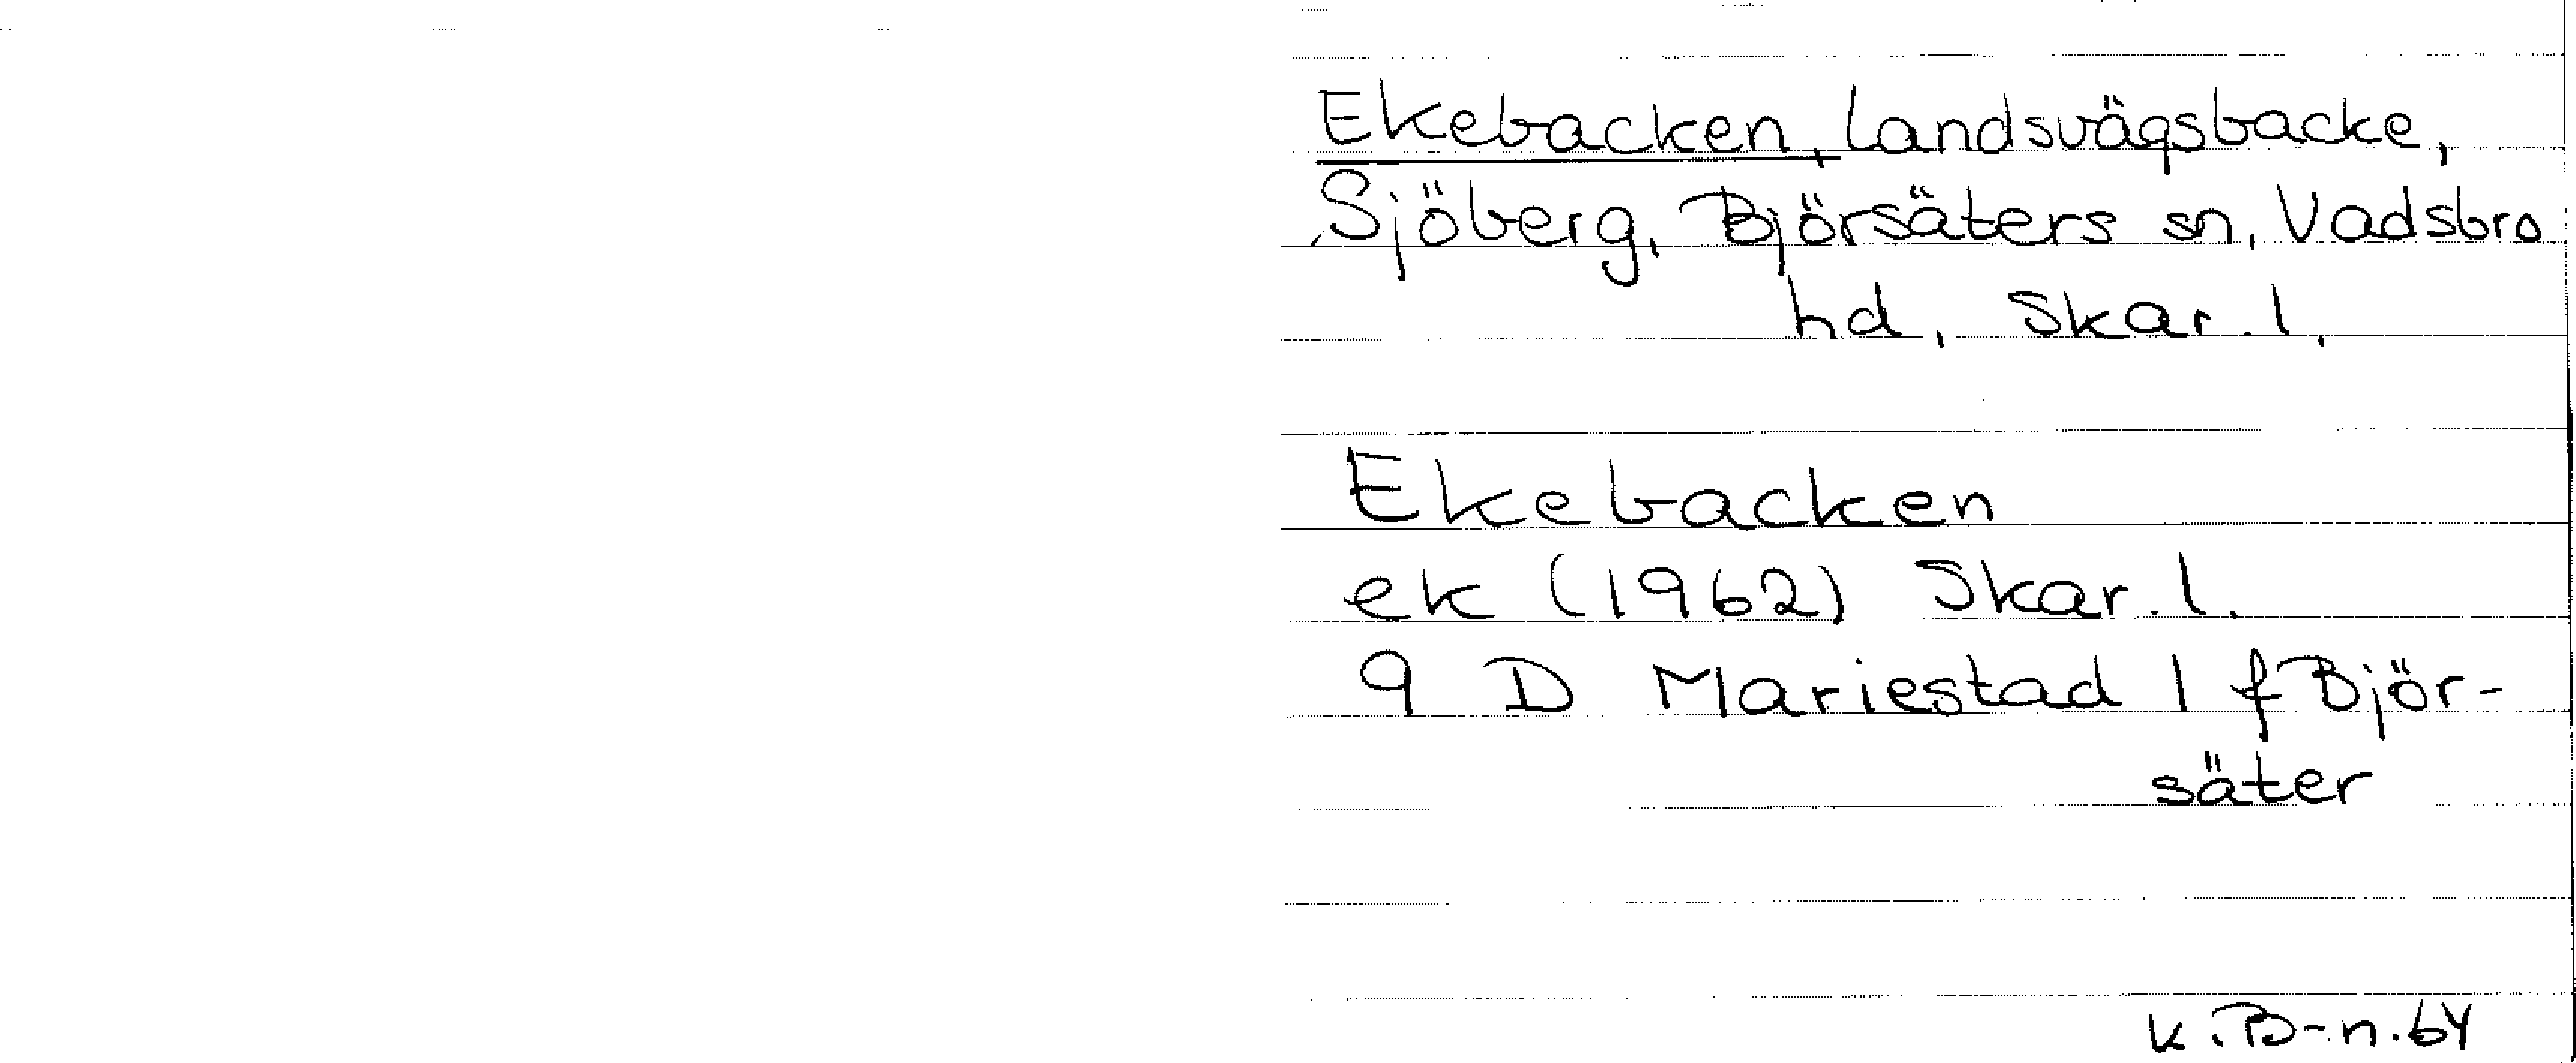 Ekebacken, landsvägsbacke,
Sjöberg, Björsäters sn, Vadsbro
hd, Skar. l.
Ekebacken
ek (1962) Skar. l.
9 D Mariestad 1 f Björ-
säter
K.B-n.64